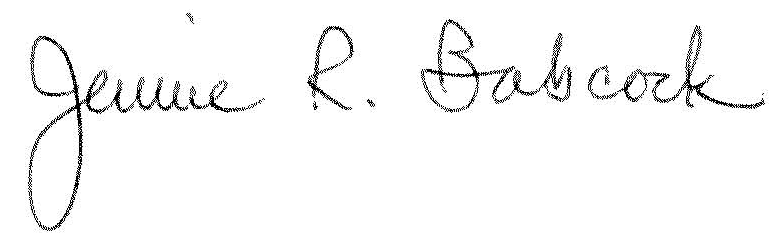 Jennie R. Babcock